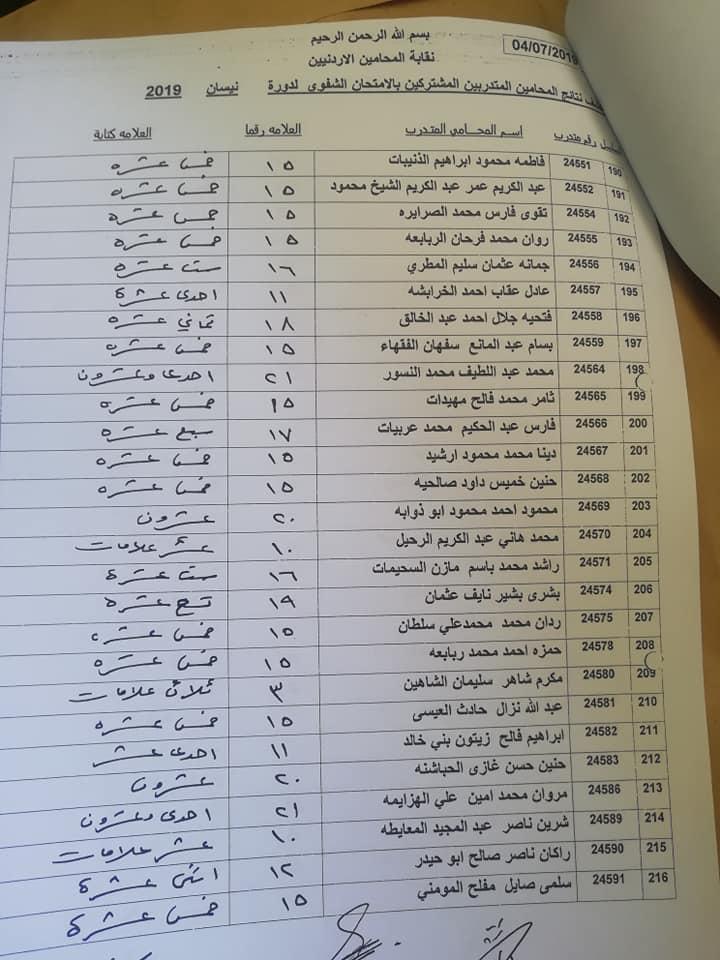 بسم الله الرحمن الرحيم
نقابة المحامين الاردنيين
04/07/2019
نتائج المحامين المتدربين المشتركين بالامتحان الشفوى لدورة نيسان 2019
رقم متدرب اسم المحامى المتدرب العلامه رقما العلامه كتابة
190 24551 فاطمه محمود ابراهيم الذنيبات ١٥ خمس عشره
191 24552 عبد الكريم عمر عبد الكريم الشيخ محمود ١٥ خمس عشره
192 24554 تقوى فارس محمد الصرايره ١٥ خمس عشره
193 24555 روان محمد فرحان الربابعه ١٥ خمس عشره
194 24556 جمانه عثمان سليم المطري ١٦ ست عشره
195 24557 عادل عقاب احمد الخرابشه ١١ احدى عشرة
196 24558 فتحيه جلال احمد عبد الخالق ١٨ ثماني عشره
197 24559 بسام عبد المانع سفهان الفقهاء ١٥ خمس عشره
198 24564 محمد عبد اللطيف محمد النسور ٢١ احدى وعشرون
199 24565 ثامر محمد فالح مهيدات ١٥ خمس عشره
200 24566 فارس عبد الحكيم محمد عربيات ١٧ سبع عشره
201 24567 دينا محمد محمود ارشيد ١٥ خمس عشره
202 24568 حنين خميس داود صالحيه ١٥ خمس عشره
203 24569 محمود احمد محمود ابو ذوابه ٢٠ عشرون
204 24570 محمد هاني عبد الكريم الرحيل ١٠ عشر علامات
205 24571 راشد محمد باسم مازن السحيمات ١٦ ست عشرة
206 24574 بشرى بشير نايف عثمان ١٩ تسع عشره
207 24575 ردان محمد محمدعلي سلطان ١٥ خمس عشره
208 24578 حمزه احمد محمد ربابعه ١٥ خمس عشره
209 24580 مكرم شاهر سليمان الشاهين ٣ ثلاث علامات
210 24581 عبد الله نزال حادث العيسى ١٥ خمس عشره
211 24582 ابراهيم فالح زيتون بني خالد ١١ احدى عشر
212 24583 حنين حسن غازى الحباشنه ٢٠ عشرون
213 24586 مروان محمد امين علي الهزايمه ٢١ احدى وعشرون
214 24589 شرين ناصر عبد المجيد المعايطه ١٠ عشر علامات
215 24590 راكان ناصر صالح ابو حيدر ١٢ اثنى عشرة
216 24591 سلمى صايل مفلح المومني ١٥ خمس عشرة